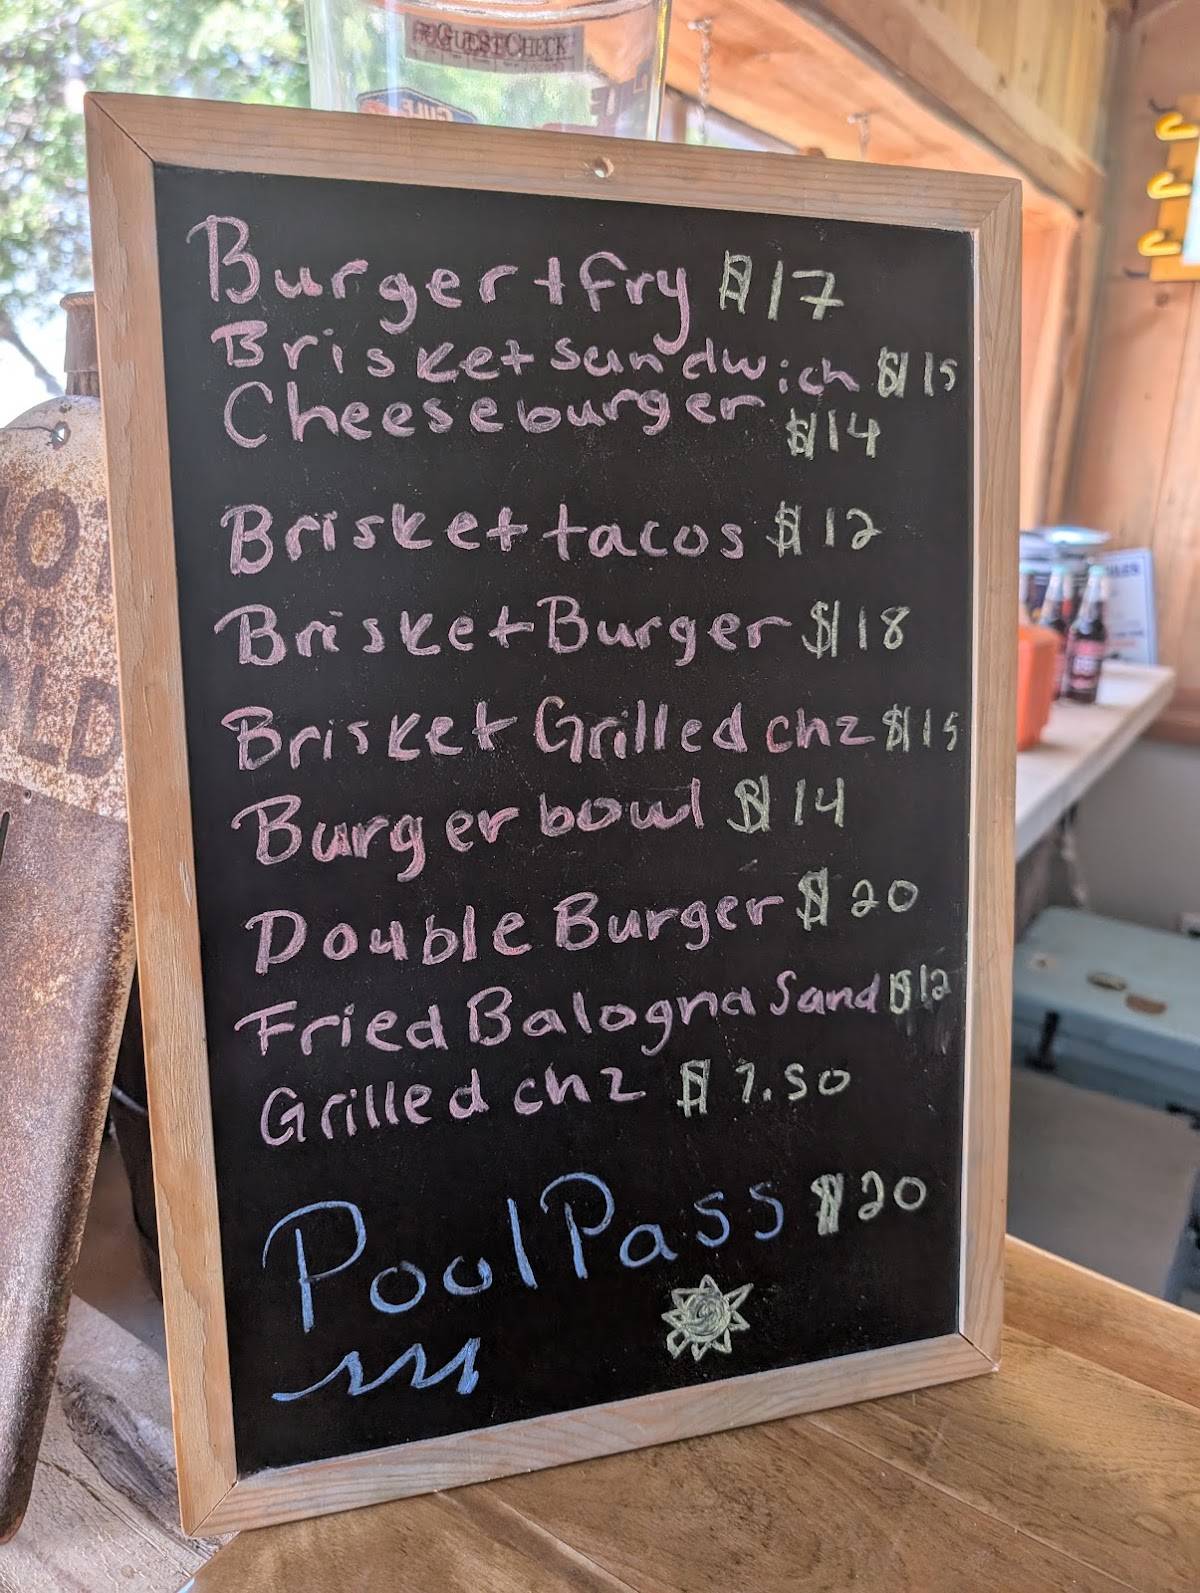 GUEST CHECK
Burger + fry $17
Brisket sandwich $15
Cheeseburger $14
Brisket tacos $12
Brisket Burger $18
Brisket Grilled chz $15
Burger bowl $14
Double Burger $20
Fried Balogna Sand $12
Grilled chz $7.50
Pool Pass $20
HOT
OR
COLD